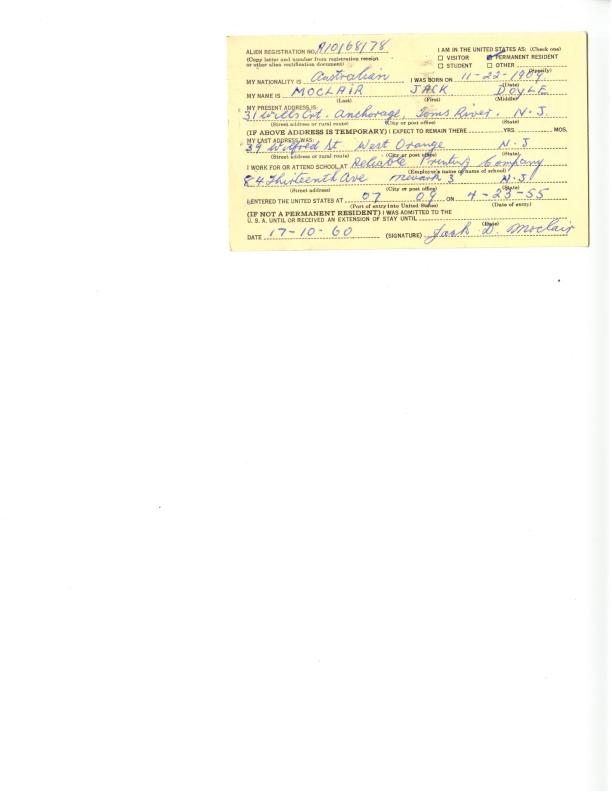 ALIEN REGISTRATION NO. A10168178 I AM IN THE UNITED STATES AS: (Check one)
(Copy letter and number from registration receipt ☐ VISITOR ☑ PERMANENT RESIDENT
or other alien rectification document) ☐ STUDENT ☐ OTHER
(Specify)
MY NATIONALITY IS Australian I WAS BORN ON 11-22-1907
(Date)
MY NAME IS MOCLAIR JACK DOYLE
(Last) (First) (Middle)
MY PRESENT ADDRESS IS:
31 Wills Crt. Anchorage, Toms River. N.J.
(Street address or rural route) (City or post office) (State)
(IF ABOVE ADDRESS IS TEMPORARY) I EXPECT TO REMAIN THERE YRS. MOS.
MY LAST ADDRESS WAS:
39 Wilfred St West Orange N.J
(Street address or rural route) (City or post office) (State)
I WORK FOR OR ATTEND SCHOOL AT Reliable Printing Company
(Employer's name or name of school)
84 Thirteenth Ave Newark 3 N.J.
(Street address) (City or post office) (State)
I ENTERED THE UNITED STATES AT 07 09 ON 4-23-55
(Port of entry into United States) (Date of entry)
(IF NOT A PERMANENT RESIDENT) I WAS ADMITTED TO THE
U. S. A. UNTIL OR RECEIVED AN EXTENSION OF STAY UNTIL
(Date)
DATE 17-10-60 (SIGNATURE) Jack D. Moclair